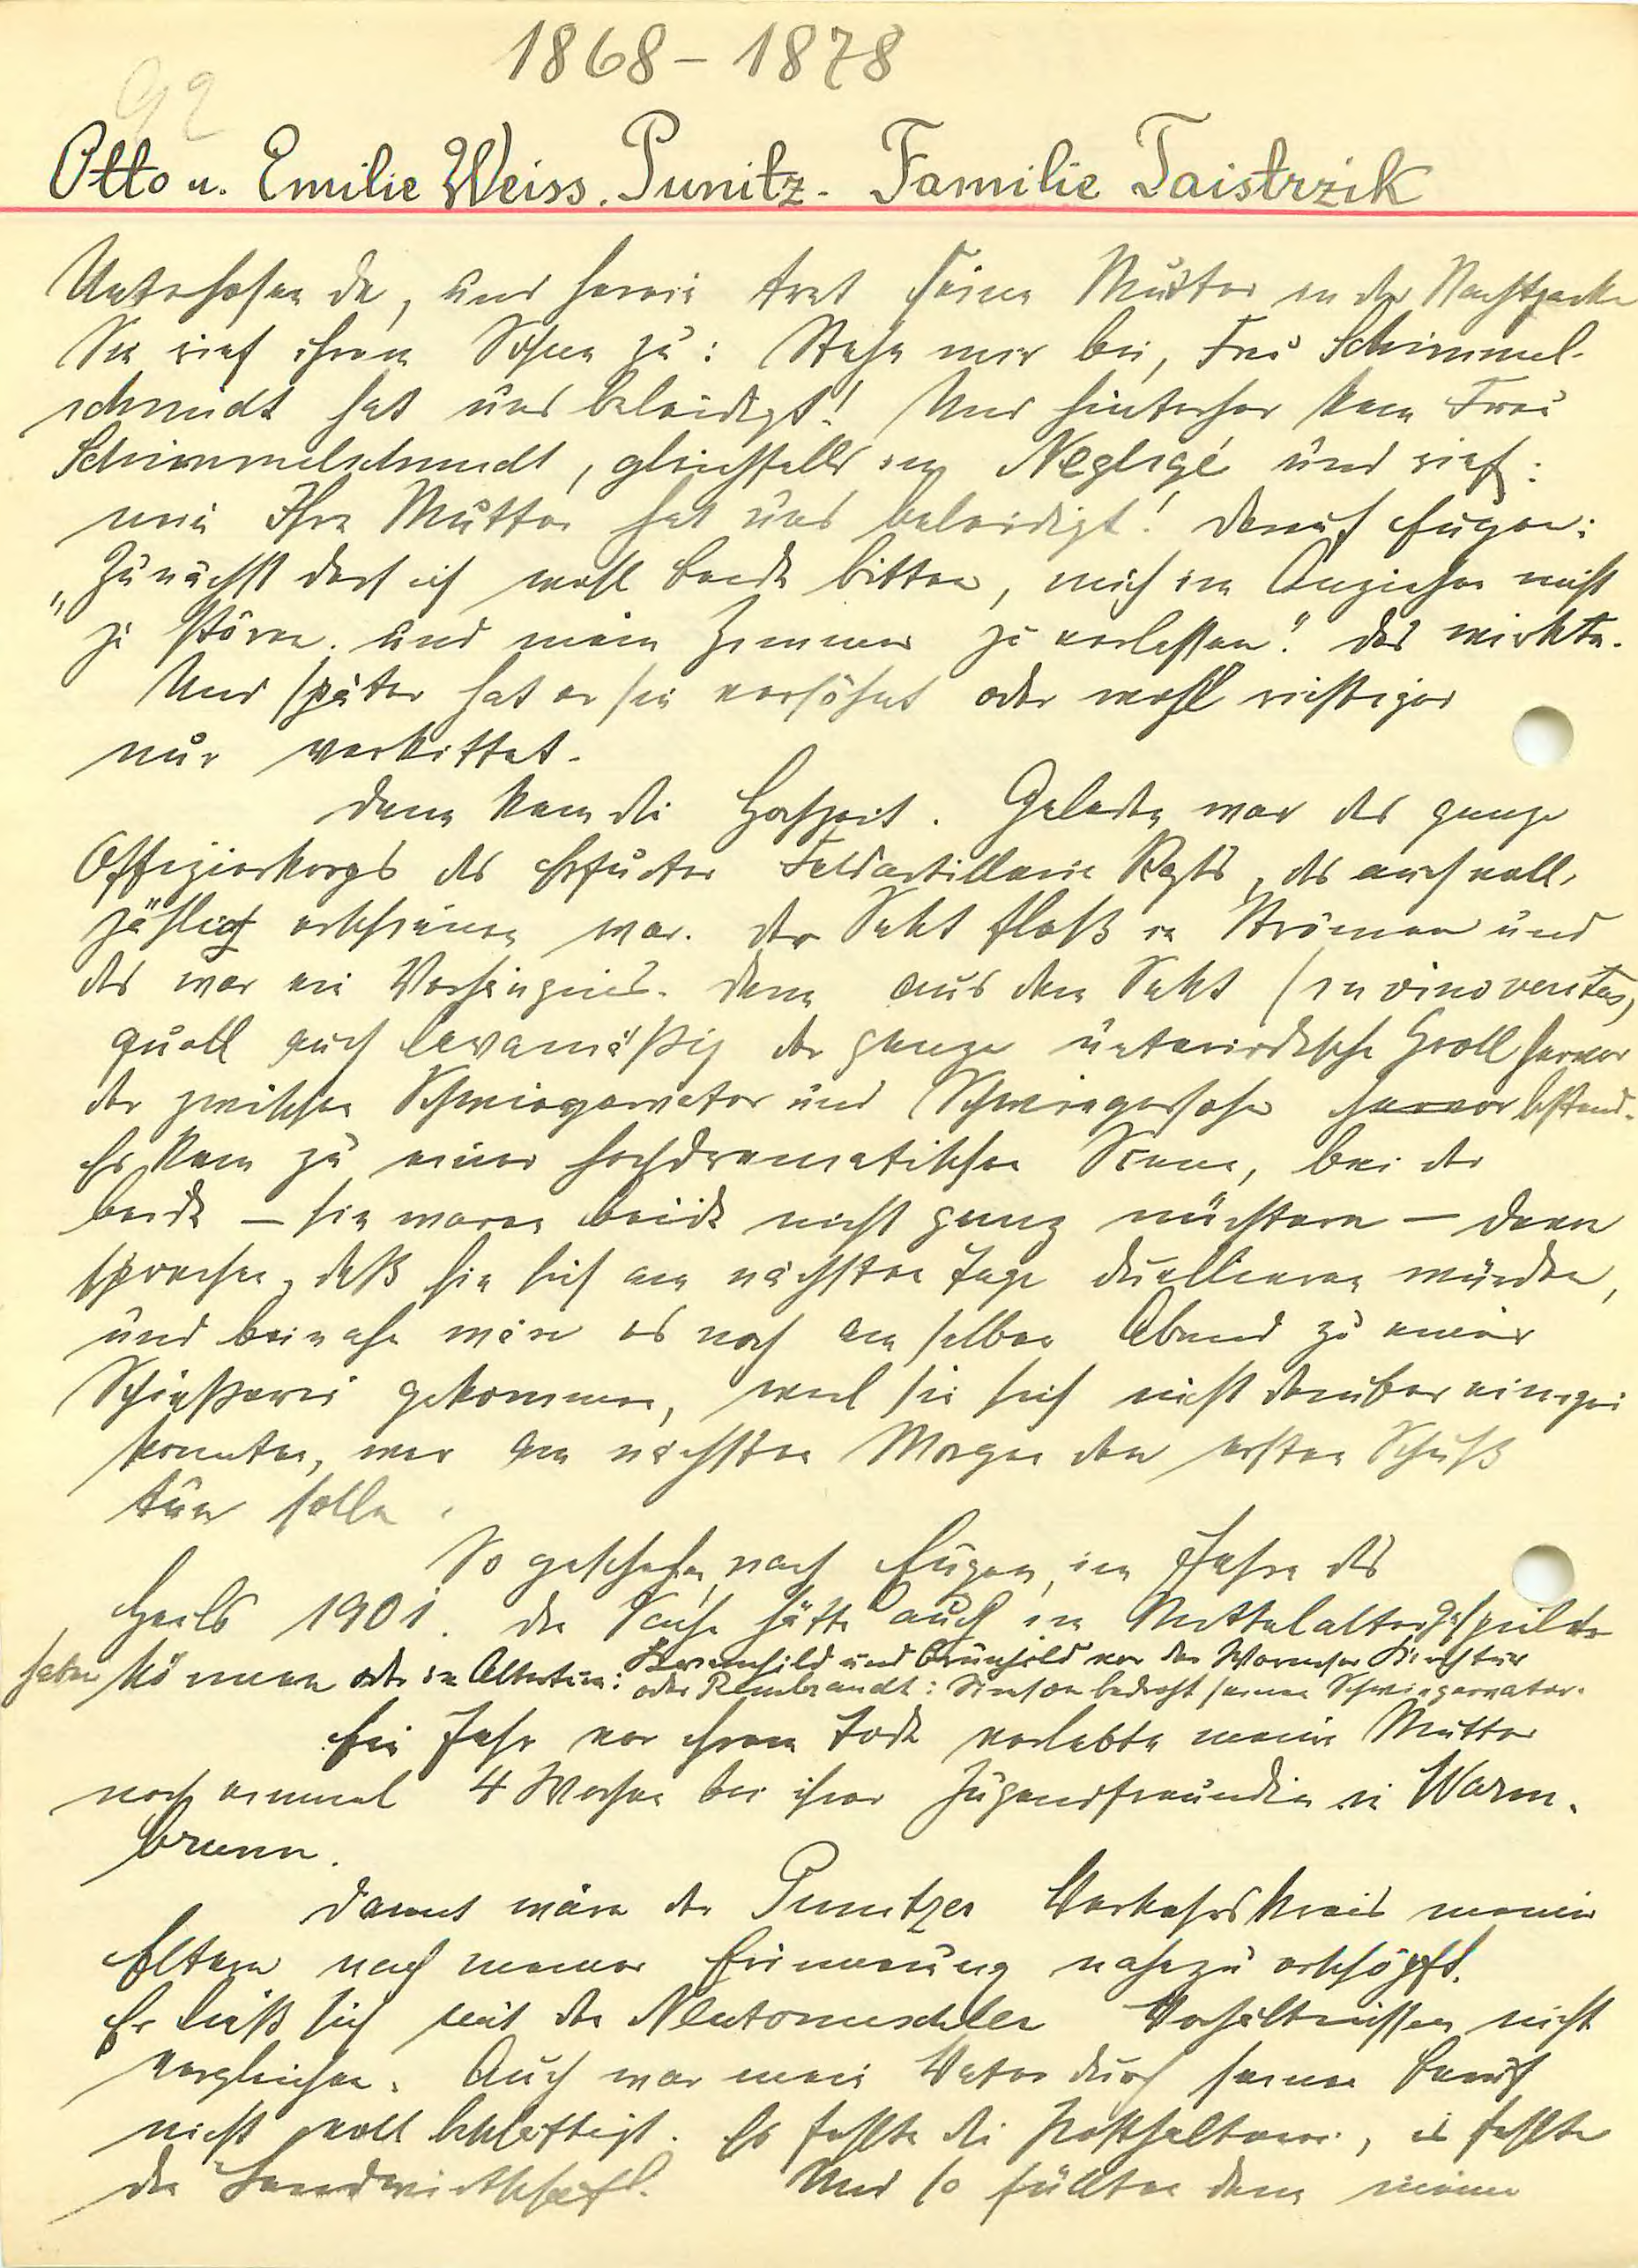 1868 – 1878
92
Otto u. Emilie Weiss. Punitz - Familie Taistrzik
Unterhosen da, und herein trat seine Mutter in der Nachtjacke
Sie rief ihrem Sohne zu: Stehe mir bei, Frau Schimmel-
schmidt hat uns beleidigt! Und hinterher kam Frau
Schimmelschmidt, gleichfalls im Negligé und rief:
nein Ihre Mutter hat uns beleidigt! Darauf Eugen:
„Zunächst darf ich wohl beide bitten, mich im Anziehen nicht
zu stören und mein Zimmer zu verlassen." Das wirkte.
Und später hat er sie versöhnt oder wohl richtiger
nur verkittet.
Dann kam die Hochzeit. Geladen war das ganze
Offizierkorps des Erfurter Feldartillerie Regts, das auch voll-
zählig erschienen war. Der Sekt floß in Strömen und
das war ein Verhängnis. Denn aus dem Sekt (in vino veritas)
quoll auch lavamäßig der ganze unterirdische Groll hervor
der zwischen Schwiegervater und Schwiegersohn hervor bestand.
Es kam zu einer hochdramatischen Scene, bei der
beide — sie waren beide nicht ganz nüchtern — dann
sprachen, daß sie sich am nächsten Tage duellieren würden,
und beinahe wäre es noch am selben Abend zu einer
Schießerei gekommen, weil sie sich nicht darüber einigen
konnten, wer am nächsten Morgen den ersten Schuß
tun solle.
So geschehen, nach Eugen, im Jahre des
Heils 1901. Die Sache hätte auch im Mittelalter gespielt
haben können oder im Altertum: Kriemhild und Brünhild vor der Wormser Kirchtür
oder Rembrandt: Simson bedroht seinen Schwiegervater.
Ein Jahr vor ihrem Tode verlebte meine Mutter
noch einmal 4 Wochen bei ihrer Jugendfreundin in Warm-
brunn.
Damit wäre der Punitzer Verkehrskreis meiner
Eltern nach meiner Erinnerung nahezu erschöpft.
Er ließ sich mit den Neutomischler Verhältnissen nicht
vergleichen. Auch war mein Vater durch seinen Beruf
nicht voll beschäftigt. Es fehlte die Posthalterei, es fehlte
die Landwirtschaft. Und so füllten denn meine